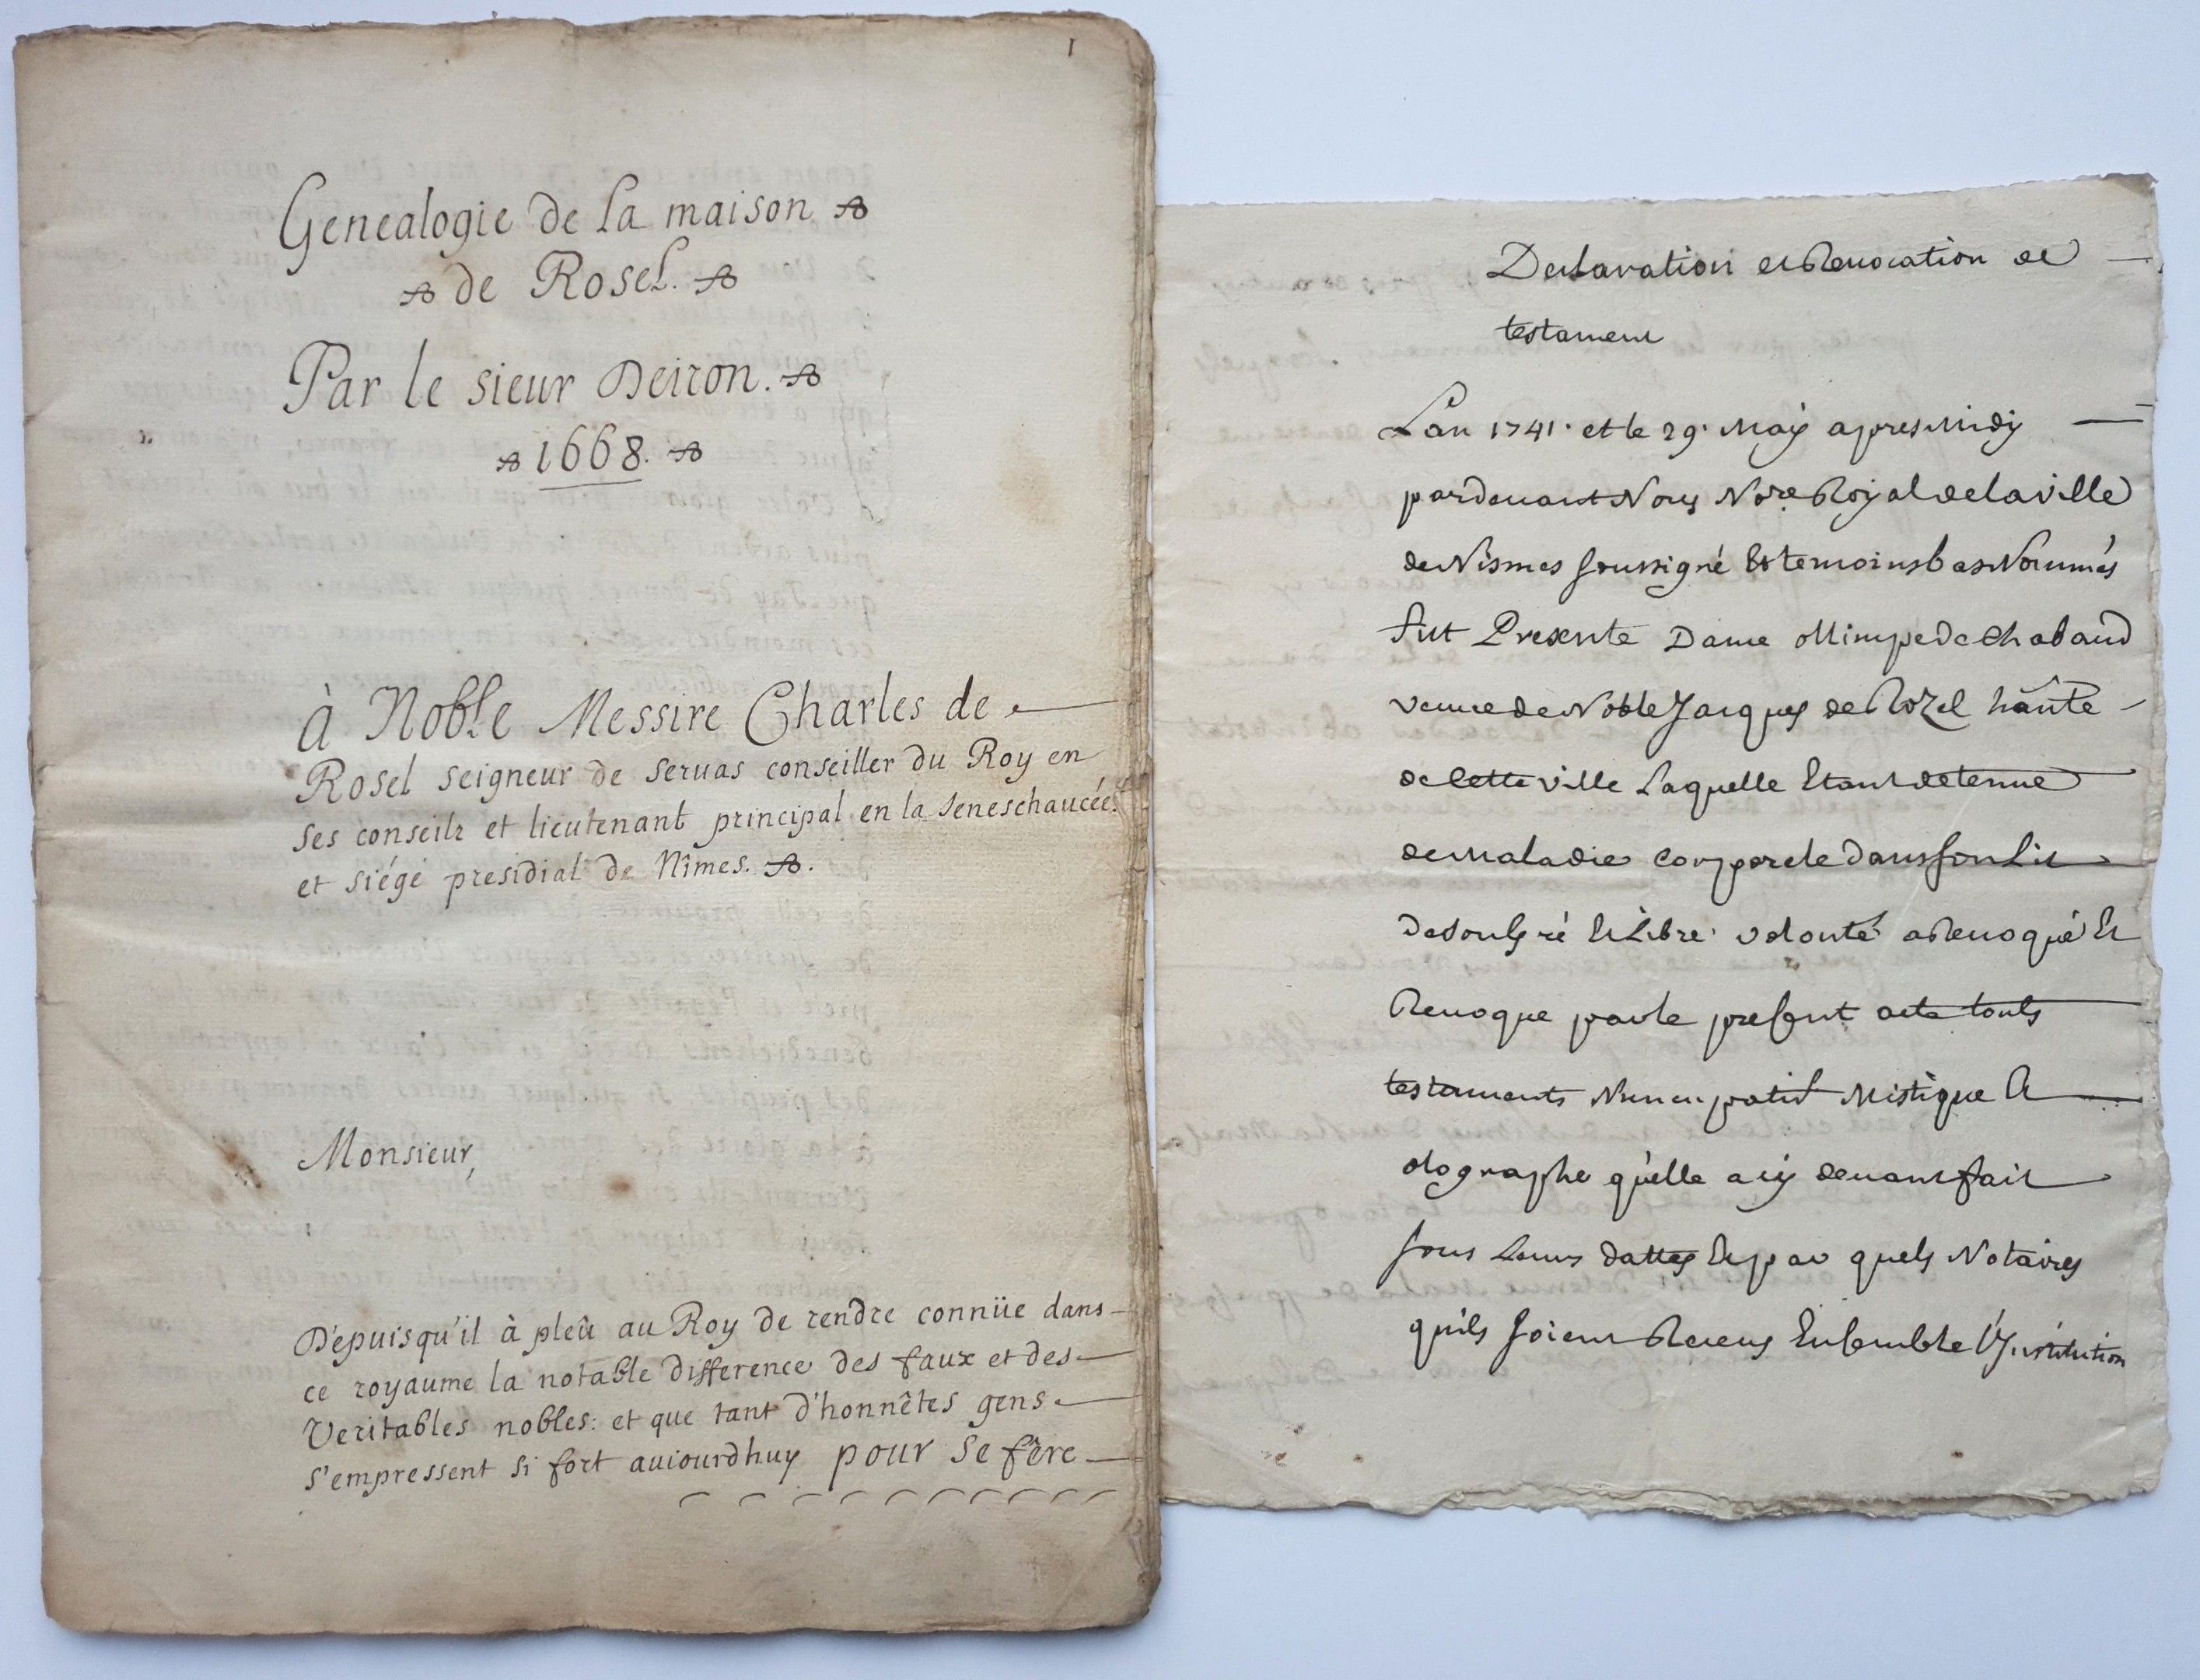 1
Genealogie de la maison
de Rosel.
Par le sieur Deiron.
1668.
à Noble Messire Charles de
Rosel seigneur de servas conseiller du Roy en
ses conseilz et lieutenant principal en la seneschaucée
et siégé presidial de Nîmes.
Monsieur,
Dépuisqu'il à pleû au Roy de rendre connüe dans
ce royaume la notable difference des faux et des
Veritables nobles: et que tant d'honnêtes gens
s'empressent si fort auiourdhuy pour se fêre
Declaration et Revocation de
testament
L'an 1741. et le 29. May apres midy
pardevant Nous Nore Royal de la ville
de Nismes soussigné Et temoins bas Nommés
fut Presente Dame Olimpe de Chabaud
veuve de Noble Jacques de Rozel hãnte
de Cette ville Laquelle Etant detenue
de maladie Corporele dans son Lit
de son gré Et Libre volonté a Revoqué Et
Revoque par le present acte touts
testaments Nuncupatif Mistique Et
olographe qu'elle a cy devant fait
sous Leurs dattes Et par quels Notaires
quils soient Receus Ensemble L'Institution